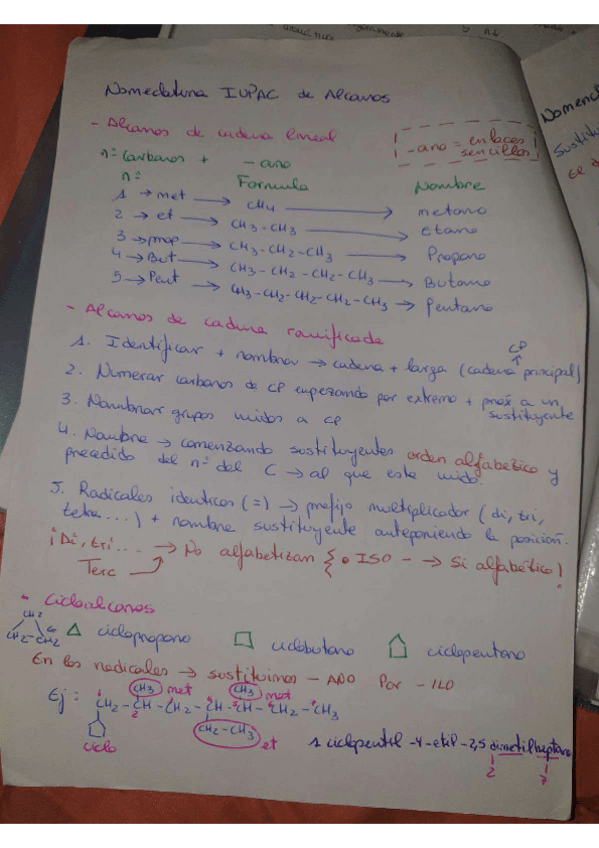 Nomeclatura IUPAC de Alcanos
- Alcanos de cadena lineal
-ano = enlaces sencillos
nº carbonos + -ano
nº Formula Nombre
1 → met → CH4 → metano
2 → et → CH3-CH3 → etano
3 → prop → CH3-CH2-CH3 → Propano
4 → But → CH3-CH2-CH2-CH3 → Butano
5 → Pent → CH3-CH2-CH2-CH2-CH3 → Pentano
- Alcanos de cadena ramificada
CP
1. Identificar + nombrar → cadena + larga (cadena principal)
2. Numerar carbonos de CP empezando por extremo + prox a un
sustituyente
3. Nombrar grupos unidos a CP
4. Nombre → comenzando sustituyentes orden alfabético y
precedido del nº del C → al que este unido.
5. Radicales identicos (=) → prefijo multiplicador (di, tri,
tetra...) + nombre sustituyente anteponiendo la posición.
¡Di, tri... → No alfabetizan { • ISO - → Si alfabético!
Terc
- Cicloalcanos
CH2
CH2-CH2 ciclopropano ciclobutano ciclopentano
En los radicales → sustituimos -ANO Por -ILO
CH3 met CH3 met
Ej: CH2-CH-CH2-CH-CH-CH2-CH3
2
CH2-CH3 et
ciclo
1 ciclopentil-4-etil-2,5 dimetilheptano
2 7
Nomencl
Sustitu